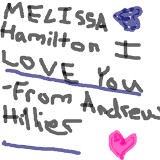 MELISSA
Hamilton I
LOVE You
-From Andrew
Hillier